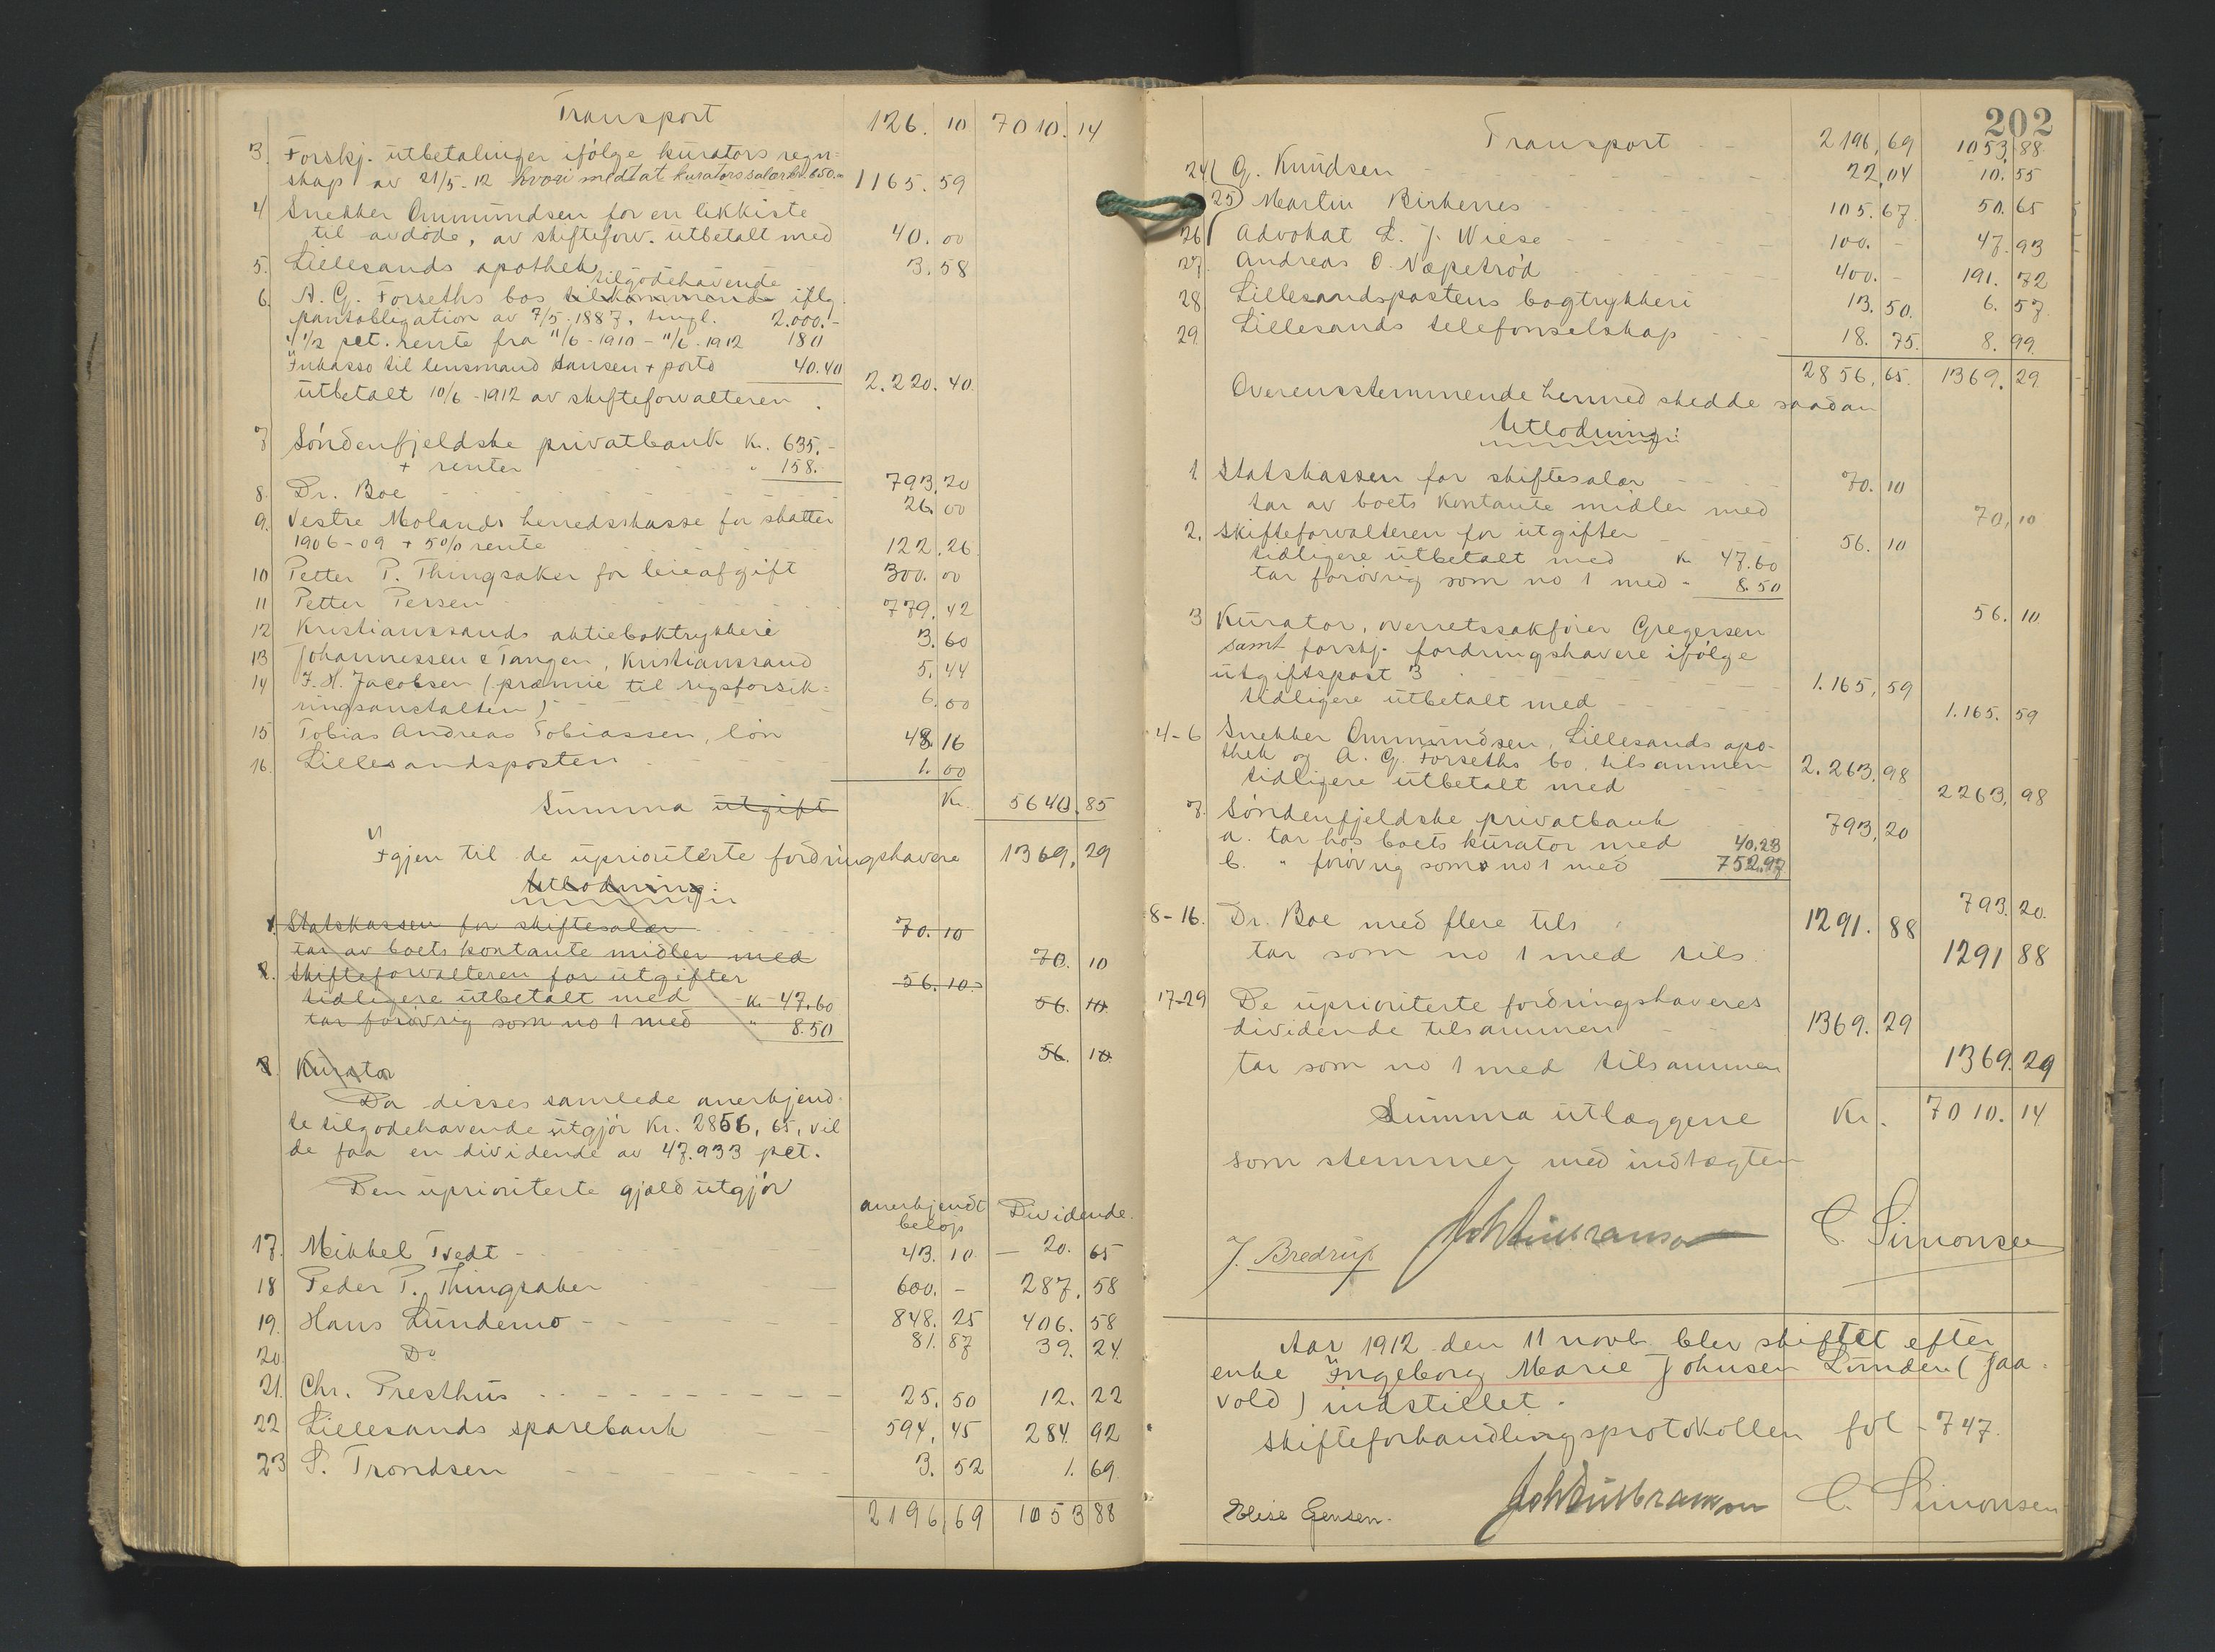 Transport 126. 10 7010. 14
3. Forskj. utbetalinger ifølge kurators regn-
skap av 21/5-12 hvori medtat kurators salær kr. 650.00 1165. 59
4 Snekker Ommundsen for en likkiste
til avdøde, av skifteforv. utbetalt med 40. 00
5. Lillesands apothek 3. 58
tilgodehavende
6. A. G. Forseths bos tilkommende iflg.
pantobligation av 7/5. 1887, tingl. 2.000.-
4 1/2 pct. rente fra 11/6-1910 - 11/6-1912 180
Inkasso til lensmand Hansen + porto 40.40
2.220. 40
utbetalt 10/6-1912 av skifteforvalteren.
7 Søndenfjeldske privatbank Kr. 635.-
+ renter " 158.- 793. 20
8. Dr. Boe 26. 00
9. Vestre Molands herredskasse for skatter
1906-09 + 5% rente 122. 26
10 Petter P. Thingsaker for leieafgift 300. 00
11 Petter Persen 779. 42
12 Kristianssands aktieboktrykkeri 3. 60
13 Johannessen & Tangen, Kristianssand 5. 44
14 J. H. Jacobsen (præmie til rigsforsik-
ringsanstalten) 6. 00
15 Tobias Andreas Tobiassen, løn 48. 16
16. Lillesandsposten 1. 00
Summa utgift Kr. 5640. 85
Igjen til de uprioriterte fordringshavere 1369. 29
Utlodning:
1. Statskassen for skiftesalær 70. 10
tar av boets kontante midler med 70. 10
2. Skifteforvalteren for utgifter 56. 10
tidligere utbetalt med K. 47.60 56. 10
tar forøvrig som no 1 med " 8.50
56. 10
3. Kurator
Da disses samlede anerkjend-
te tilgodehavende utgjør Kr. 2856, 65, vil
de faa en dividende av 47.933 pct.
Den uprioriterte gjæld utgjør
anerkjendt beløp Dividende
17. Mikkel Tvedt 43. 10 20. 65
18 Peder P. Thingsaker 600. - 287. 58
19. Hans Lundemo 848. 25 406. 58
20. Do 81. 87 39. 24
21. Chr. Presthus 25. 50 12. 22
22 Lillesands sparebank 594. 45 284. 92
23 S. Trondsen 3. 52 1. 69
2196 69 1053 88
202
Transport 2196, 69 1053. 88
24 G. Knudsen 22, 04 10. 55
25 Martin Birkenes 105. 67 50. 65
26 Advokat L. J. Wiese 100. - 47. 93
27. Andreas O. Næpetrød 400. - 191. 72
28. Lillesandspostens bogtrykkeri 13. 50. 6. 57
29. Lillesands telefonselskap 18. 75. 8. 99
2856, 65. 1369. 29.
Overensstemmende hermed skedde saadan
Utlodning:
1. Statskassen for skiftesalær 70. 10
tar av boets kontante midler med 70, 10
2. Skifteforvalteren for utgifter 56. 10
tidligere utbetalt med K. 47.60
tar forøvrig som no 1 med - 8.50
56. 10
3 Kurator, overretssakfører Gregersen
samt forskj. fordringshavere ifølge
utgiftspost 3 1.165, 59
tidligere utbetalt med 1.165. 59
4-6 Snekker Ommundsen, Lillesands apo-
thek og A. G. Forseths bo, tilsammen 2.263, 98
tidligere utbetalt med 2263, 98
7. Søndenfjeldske privatbank 793, 20
a. tar hos boets kurator med 40.23
b. " forøvrig som no 1 med 752.97
793. 20.
8-16. Dr. Boe med flere tils 1291. 88
tar som no 1 med tils. 1291 88
17-29 De uprioriterte fordringshaveres
dividende tilsammen 1369. 29
tar som no 1 med tilsammen 1369. 29
Summa utlæggene Kr. 7010. 14
som stemmer med indtægten
J. Bredrup C. Simonsen
Aar 1912 den 11 novb. blev skiftet efter
enke Ingeborg Marie Johnsen Lunden (Jaa-
vold) indstillet.
Skifteforhandlingsprotokollen fol - 747.
Elise Jensen. C. Simonsen